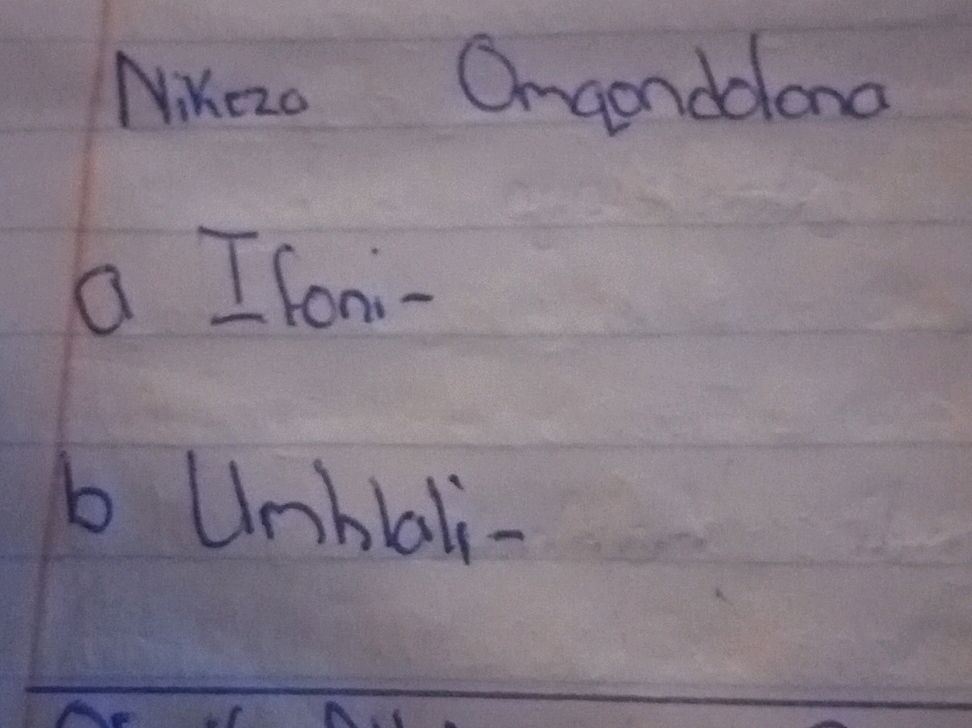 Nikeza Omqondofana
a Ifoni-
b Umhlali-